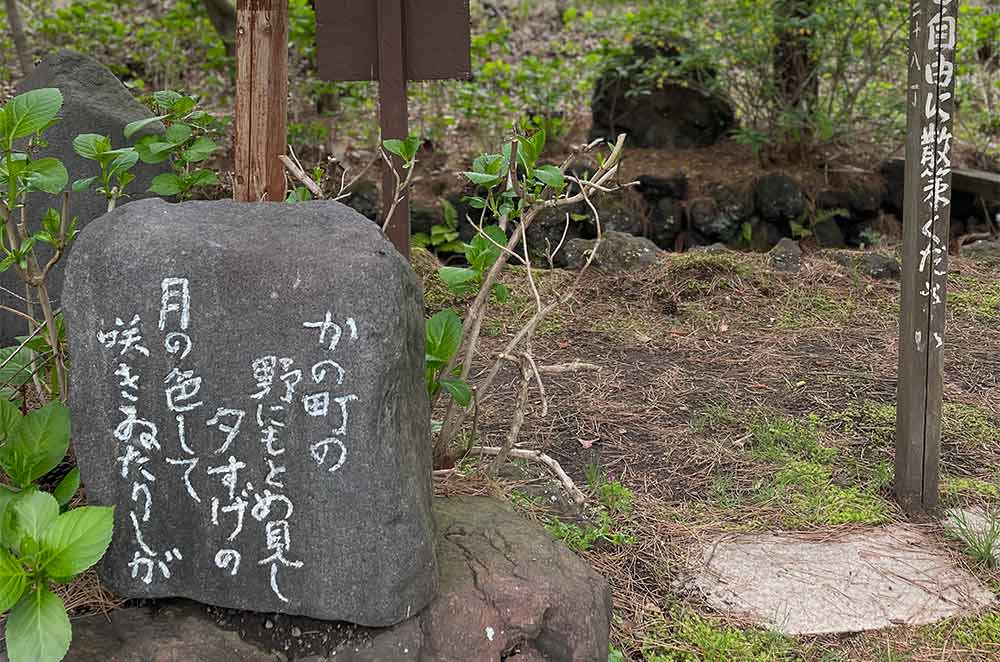 かの町の
野にもとめ見し
夕すげの
月の色して
咲きゐたりしが
自由に散策ください